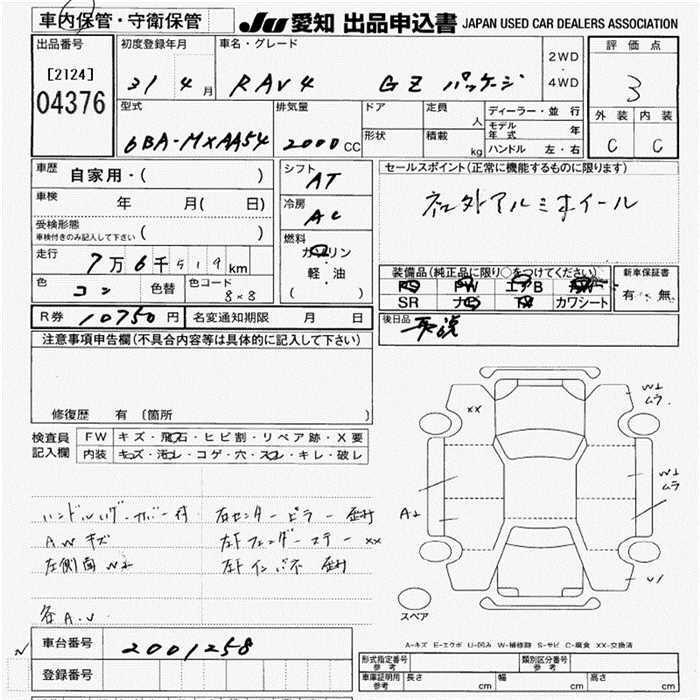 車内保管・守衛保管
JU 愛知 出品申込書 JAPAN USED CAR DEALERS ASSOCIATION
出品番号
[2124]
04376
初度登録年月
31 4 月
車名・グレード
RAV4 GZ パッケージ
2WD
・
4WD
評価点
3
外装 内装
C C
型式
6BA-MXAA54
排気量
2000 CC
ドア
形状
定員
人
積載
kg
ディーラー・並行
モデル年式 年
ハンドル 左・右
車歴
自家用・( )
車検
年 月( 日)
受検形態
車検付きのみ記入して下さい ( )
走行
7万6千519km
色
コン
色替
色コード
8×8
シフト
AT
冷房
AC
燃料
ガソリン
軽・油
( )
セールスポイント(正常に機能するものに限ります)
社外アルミホイール
装備品(純正品に限り○をつけてください)
PS PW エアB AW
SR ナビ TV カワシート
新車保証書
有・無
後日品
取説
R券 10750円
名変通知期限 月 日
注意事項申告欄(不具合内容等は具体的に記入して下さい)
修復歴 有 〔箇所 〕
検査員記入欄
FW キズ・飛石・ヒビ割・リペア跡・X要
内装 キズ・汚レ・コゲ・穴・スレ・キレ・破レ
A.W キズ
左側面 W2
右センターピラー
XX
W2
ムラ
W2
ムラ
A2
U1
スペア
A-キズ E-エクボ U-凹み W-補修跡 S-サビ C-腐食 XX-交換済
車台番号
2001258
登録番号
形式指定番号
参考
類別区分番号
参考
車庫証明用
参考
長さ cm 幅 cm 高さ cm